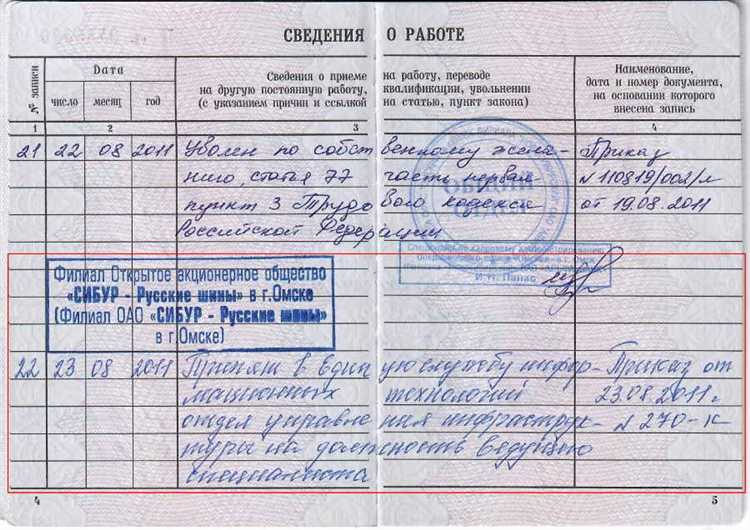 СВЕДЕНИЯ О РАБОТЕ
№ записи
Дата
число месяц год
Сведения о приеме на работу, переводе
на другую постоянную работу, квалификации, увольнении
(с указанием причин и ссылкой на статью, пункт закона)
Наименование,
дата и номер документа,
на основании которого
внесена запись
1 2 3 4
21 22 08 2011 Уволен по собственному жела- Приказ
нию, статья 77 часть первая N110819/002/л
пункт 3 Трудового кодекса от 19.08.2011
Российской Федерации
ОБЩИЙ
ОТДЕЛ
Филиал Открытое акционерное общество
«СИБУР - Русские шины» в г.Омске
(Филиал ОАО «СИБУР - Русские шины»
в г.Омске)
22 23 08 2011 Принят в Единую службу инфор- Приказ от
мационных технологий 23.08.2011г.
отдел управления инфраструк- N 270-к
туры на должность ведущего
специалиста
4 5